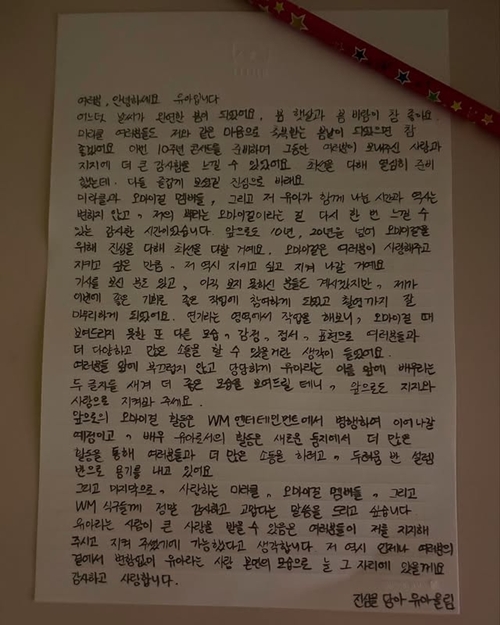 여러분, 안녕하세요 유아입니다
어느덧 날씨가 완연한 봄이 되었어요, 봄 햇살과 봄 바람이 참 좋아요.
미라클 여러분들도 저와 같은 마음으로 행복한 봄날이 되었으면 참
좋겠어요 이번 10주년 콘서트를 준비하며 그동안 여러분이 보내주신 사랑과
지지에 더 큰 감사함을 느낄 수 있었어요 최선을 다해 열심히 준비
했는데. 다들 즐겁게 보셨길 진심으로 바래요
미라클과 오마이걸 멤버들, 그리고 저 유아가 함께 나눈 시간과 역사는
변하지 않고, 저의 뿌리는 오마이걸이라는 걸 다시 한 번 느낄 수
있는 감사한 시간이었습니다. 앞으로도 10년, 20년을 넘어 오마이걸을
위해 진심을 다해 최선을 다할 거예요. 오마이걸은 여러분이 사랑해주고
지키고 싶은 만큼, 저 역시 지키고 싶고 지켜 나갈 거예요
기사를 보신 분도 있고, 아직 보지 못하신 분들도 계시겠지만, 제가
이번에 좋은 기회로 좋은 작업에 참여하게 되었고 촬영까지 잘
마무리하게 되었어요. 연기라는 영역에서 작업을 해보니, 오마이걸 때
보여드리지 못한 또 다른 모습, 감정, 정서, 표현으로 여러분들과
더 다양하고 많은 소통을 할 수 있을거란 생각이 들었어요.
여러분들 앞에 부끄럽지 않고 당당하게 유아라는 이름 앞에 배우라는
두 글자를 새겨 더 좋은 모습을 보여드릴 테니, 앞으로도 지지와
사랑으로 지켜봐 주세요.
앞으로의 오마이걸 활동은 WM엔터테인먼트에서 병행하여 이어나갈
예정이고, 배우 유아로서의 활동은 새로운 둥지에서 더 많은
활동을 통해 여러분들과 더 많은 소통을 하려고, 두려움 반 설렘
반으로 용기를 내고 있어요
그리고 마지막으로, 사랑하는 미라클, 오마이걸 멤버들, 그리고
WM 식구들께 정말 감사하고 고맙다는 말씀을 드리고 싶습니다
유아라는 사람이 큰 사랑을 받을 수 있음은 여러분들이 저를 지지해
주시고 지켜 주셨기에 가능했다고 생각합니다. 저 역시 언제나 여러분의
곁에서 변함없이 유아라는 사람 본연의 모습으로 늘 그 자리에 있을게요
감사하고 사랑합니다.
진심을 담아 유아올림